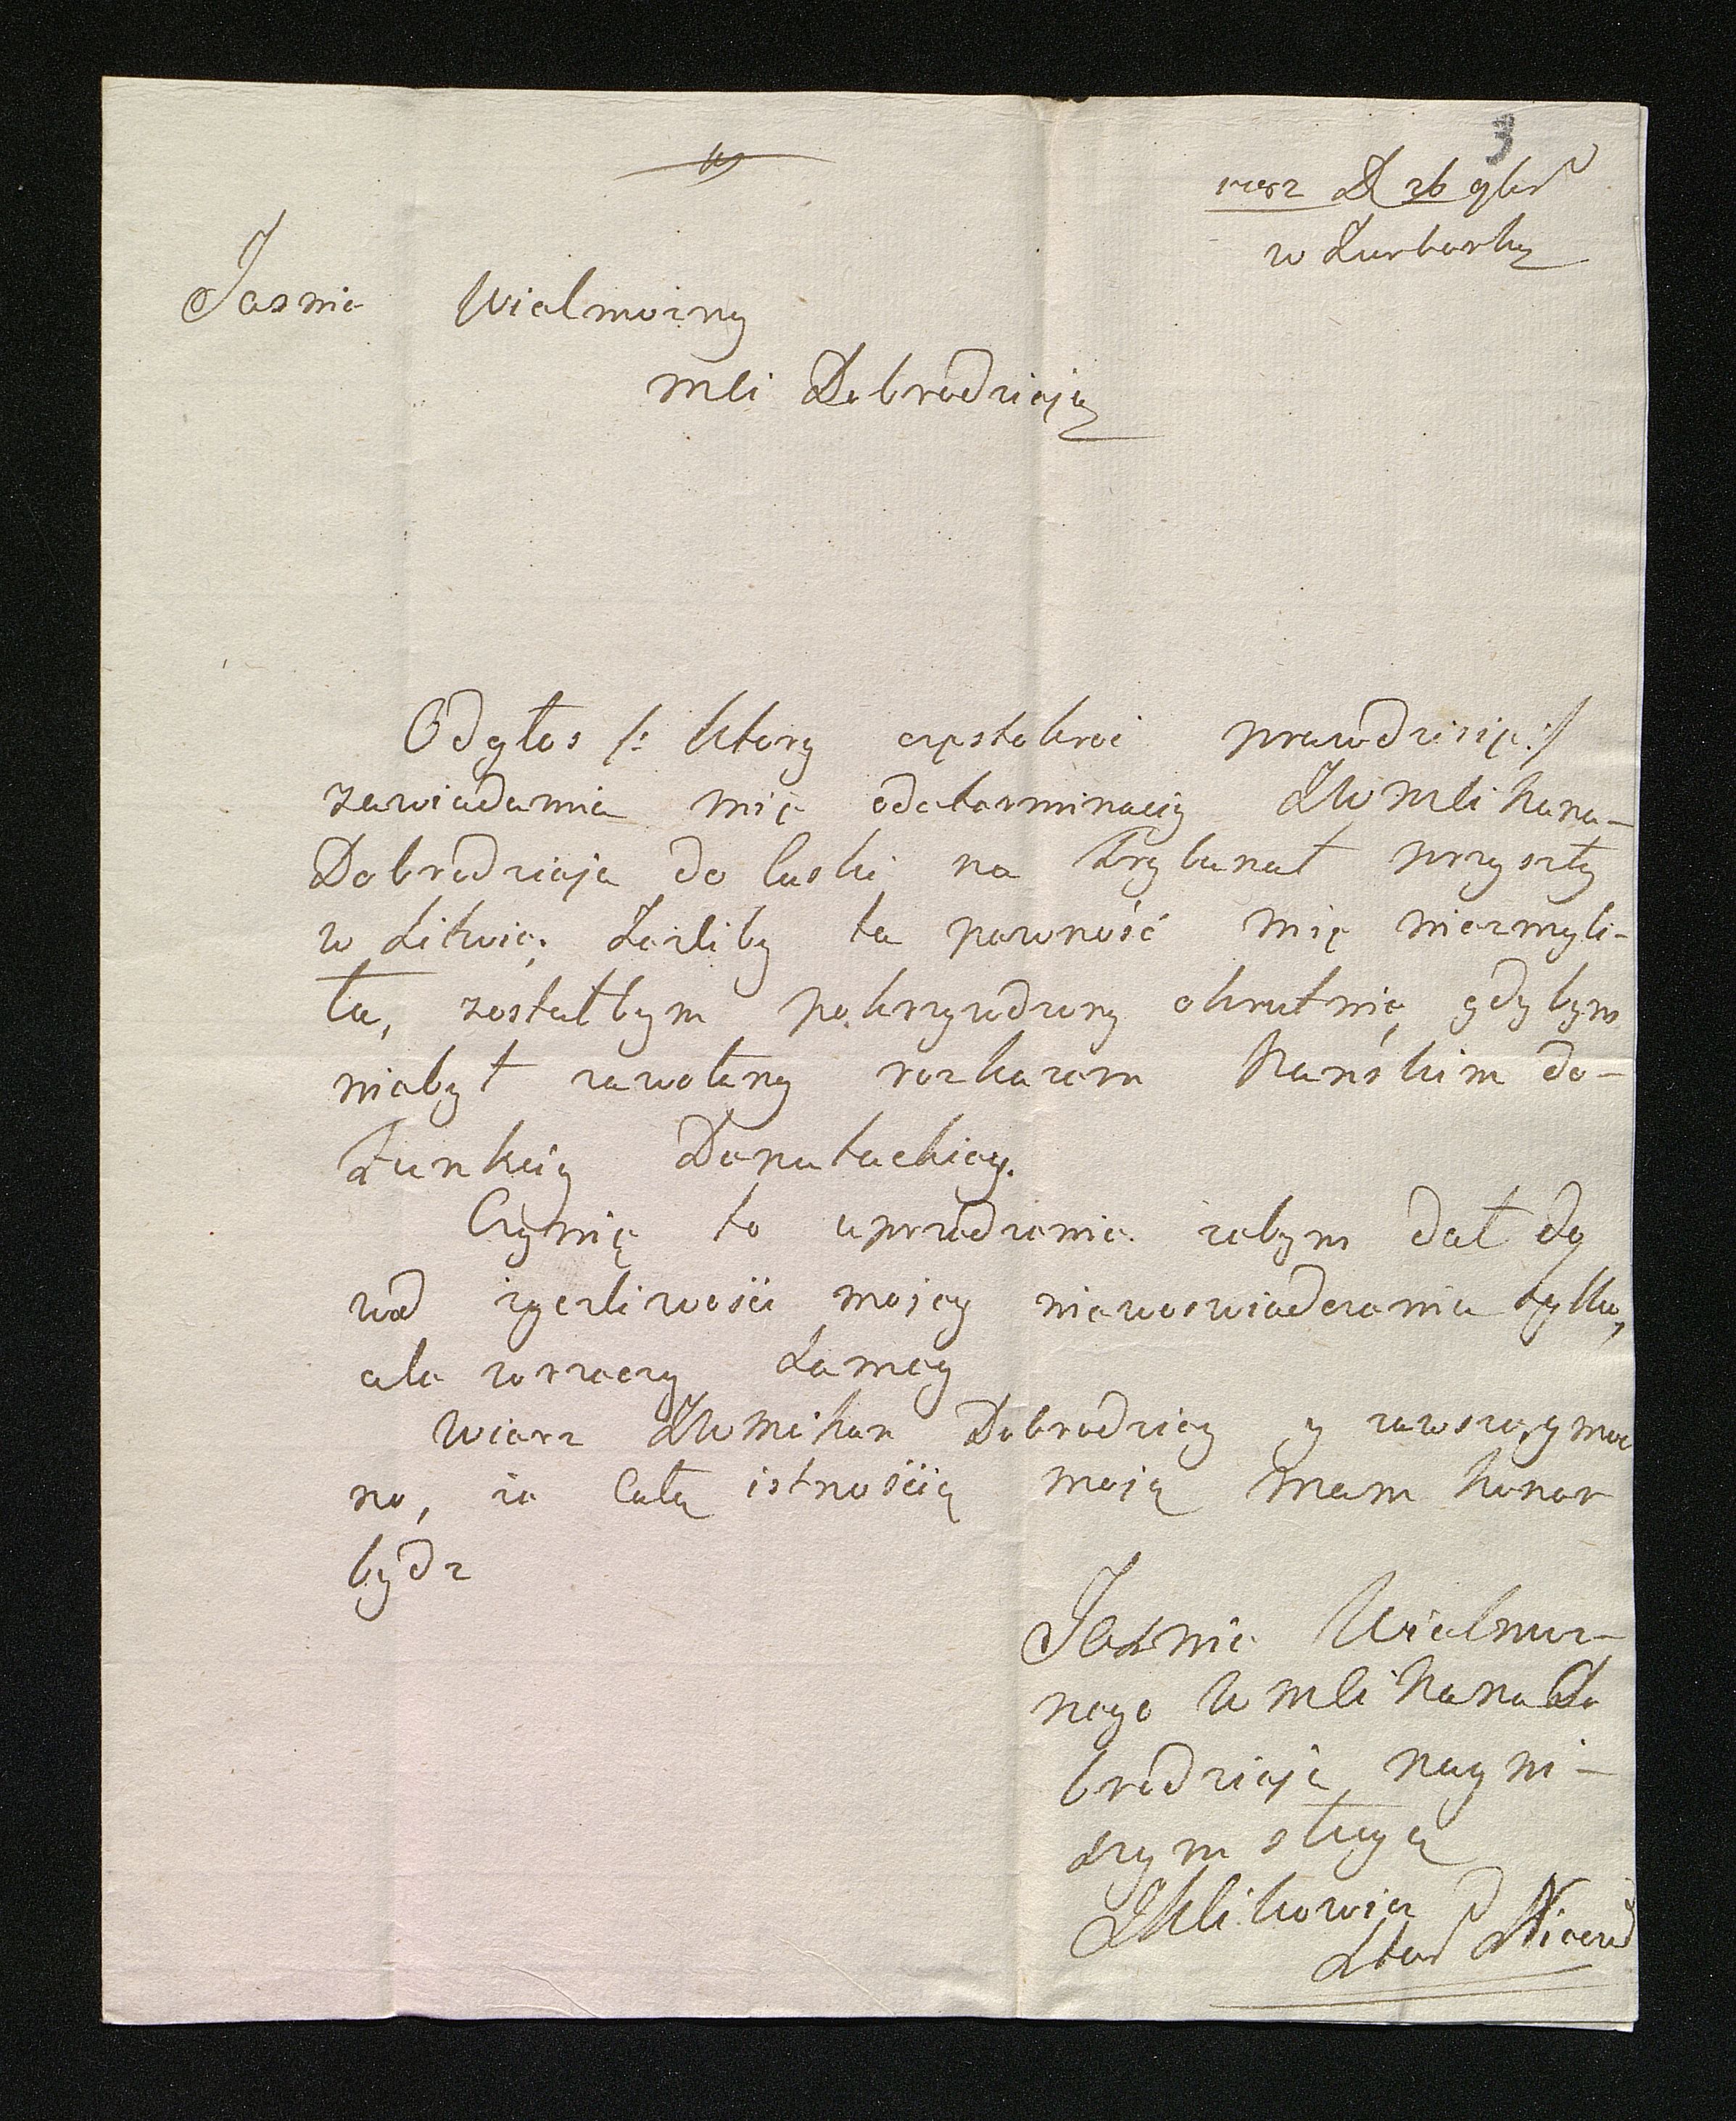 3
D 26 9br
w Zurborky
Jasnie Wielmożny
Mci Dobrodzieju
Odgłos /: ktory częstokroć prawdzisię :/
zawiadamia mię odeterminacij JWMci Pana
Dobrodzieja do laski na Trybunał przyszły
w Litwie. Jeżliby ta pewność mię niezmyli-
ła, zostałbym pokrzywdzony okrutnie, gdybym
niebył zawołany rozkazem Pańskim do-
Funkcij Deputackiey.
Czynię to uprzedzenie żebym dał do
wod życzliwości mojey niewoswiadczeniu tylko,
ale wrzeczy Samey
Wierz JWMci Pan Dobrodziey y zawszeymoc
no, że Całą istnością moją mam honor
bydz
Jaśnie Wielmoż-
nego WMci Pana Do
brodzieja nayni-
szym sługą